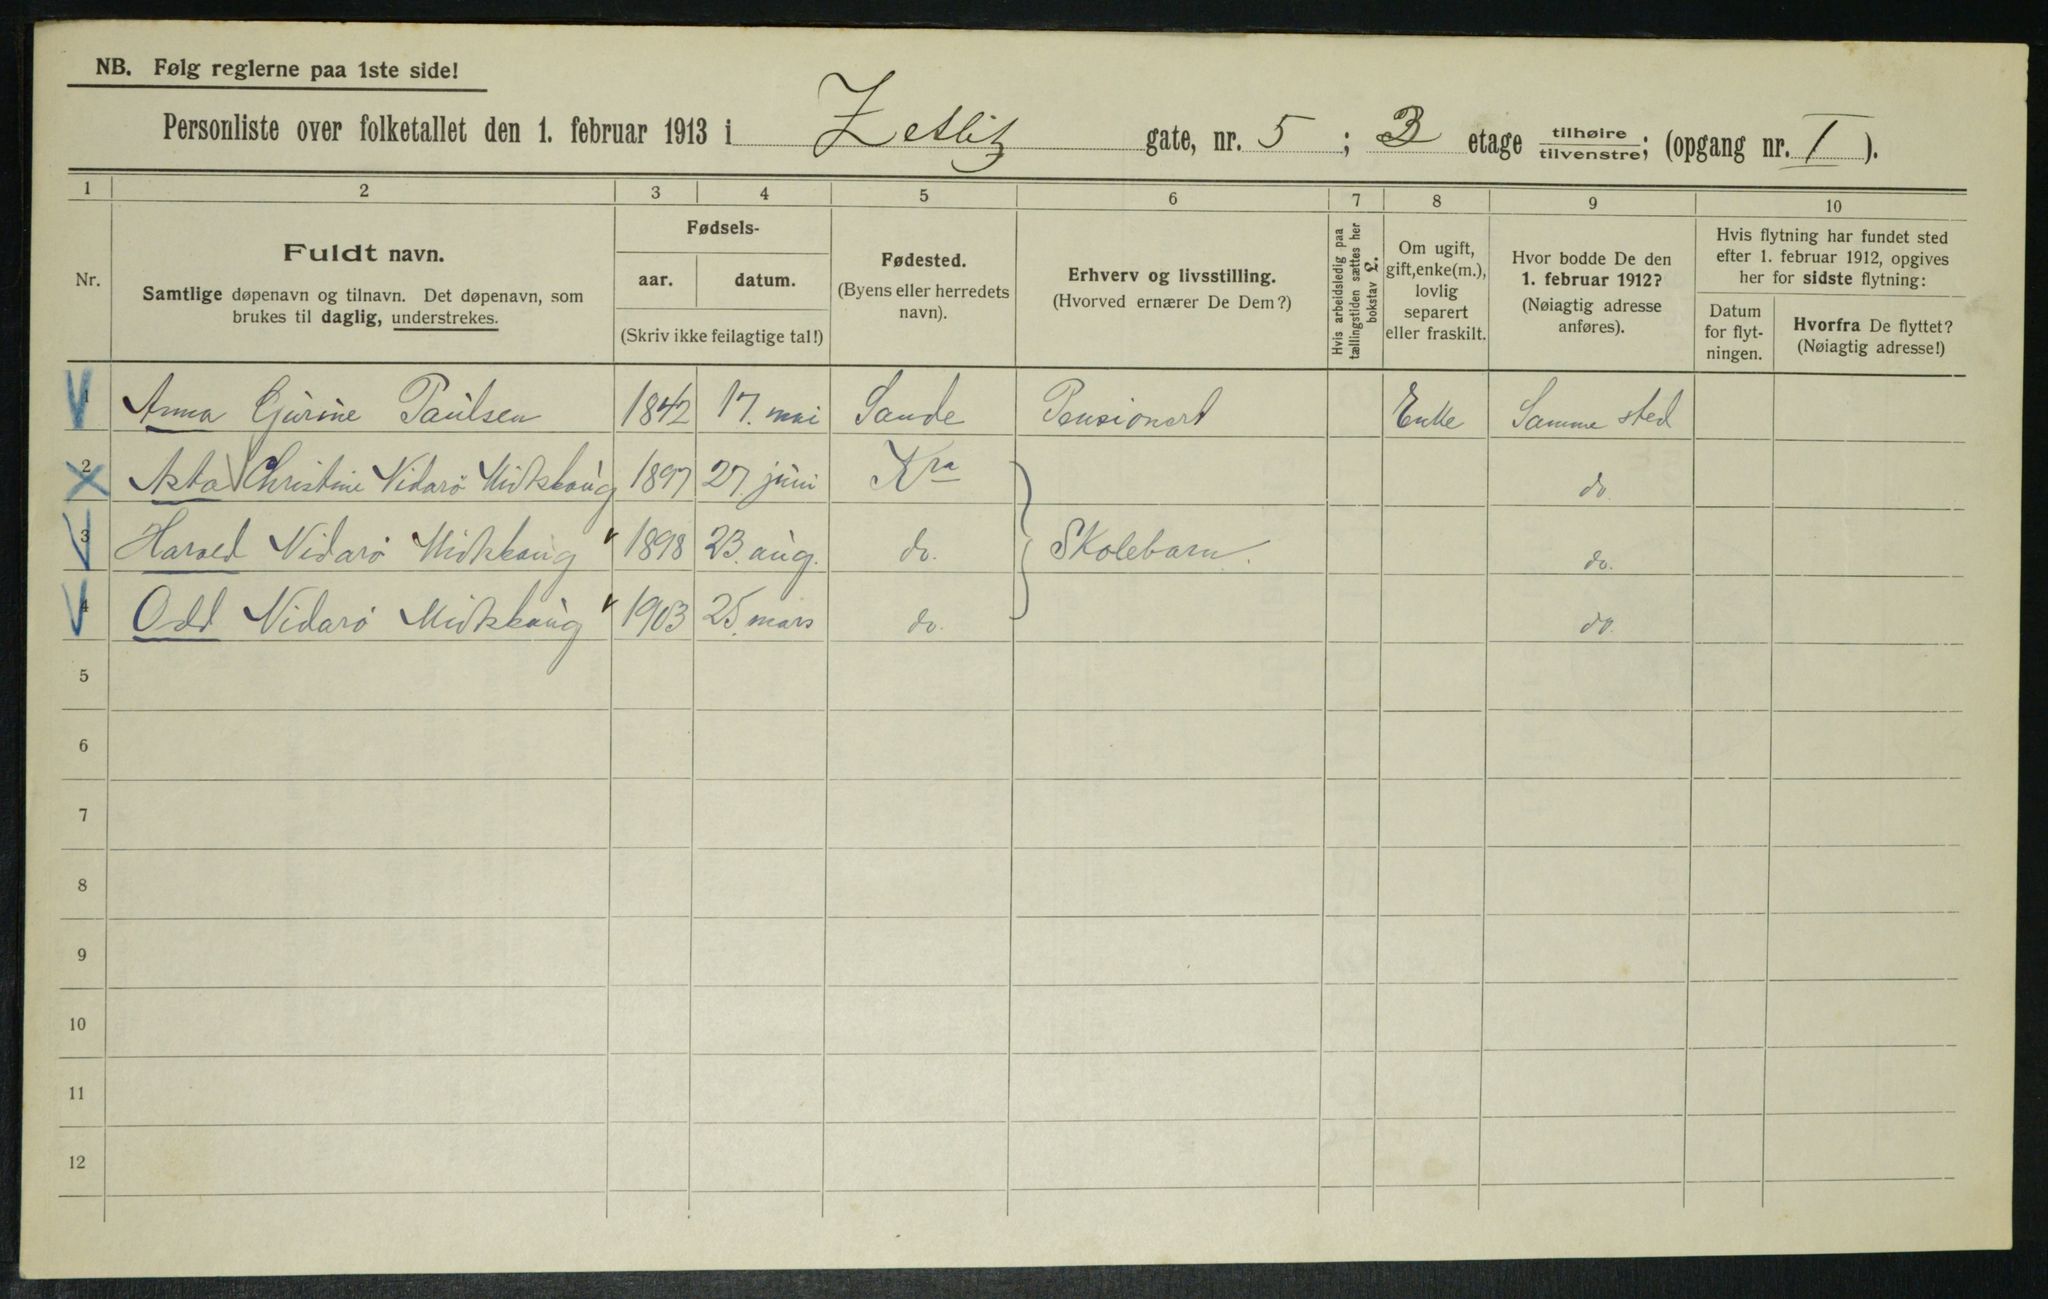 NB. Følg reglerne paa 1ste side!
Personliste over folketallet den 1. februar 1913 i Zetlitz gate, nr. 5; 3 etage tilhøire tilvenstre; (opgang nr. I).
1 2 3 4 5 6 7 8 9 10
Nr.
Fuldt navn.
Samtlige døpenavn og tilnavn. Det døpenavn, som
brukes til daglig, understrekes.
Fødsels-
aar. datum.
(Skriv ikke feilagtige tal!)
Fødested.
(Byens eller herredets
navn).
Erhverv og livsstilling.
(Hvorved ernærer De Dem?)
Hvis arbeidsledig paa
tællingstiden sættes her
bokstav L.
Om ugift,
gift, enke(m.),
lovlig
separert
eller fraskilt.
Hvor bodde De den
1. februar 1912?
(Nøiagtig adresse
anføres).
Hvis flytning har fundet sted
efter 1. februar 1912, opgives
her for sidste flytning:
Datum
for flyt-
ningen.
Hvorfra De flyttet?
(Nøiagtig adresse!)
1 Anna Gurine Paulsen 1842 17. mai Sande Pensionert Enke Samme sted
2 Asta Christine Nidarö Midtskaug 1897 27. juni Kra do.
3 Harald Nidarö Midtskaug 1898 23. aug. do. Skolebarn. do.
4 Odd Nidarö Midtskaug 1903 25. mars do. do.
5
6
7
8
9
10
11
12